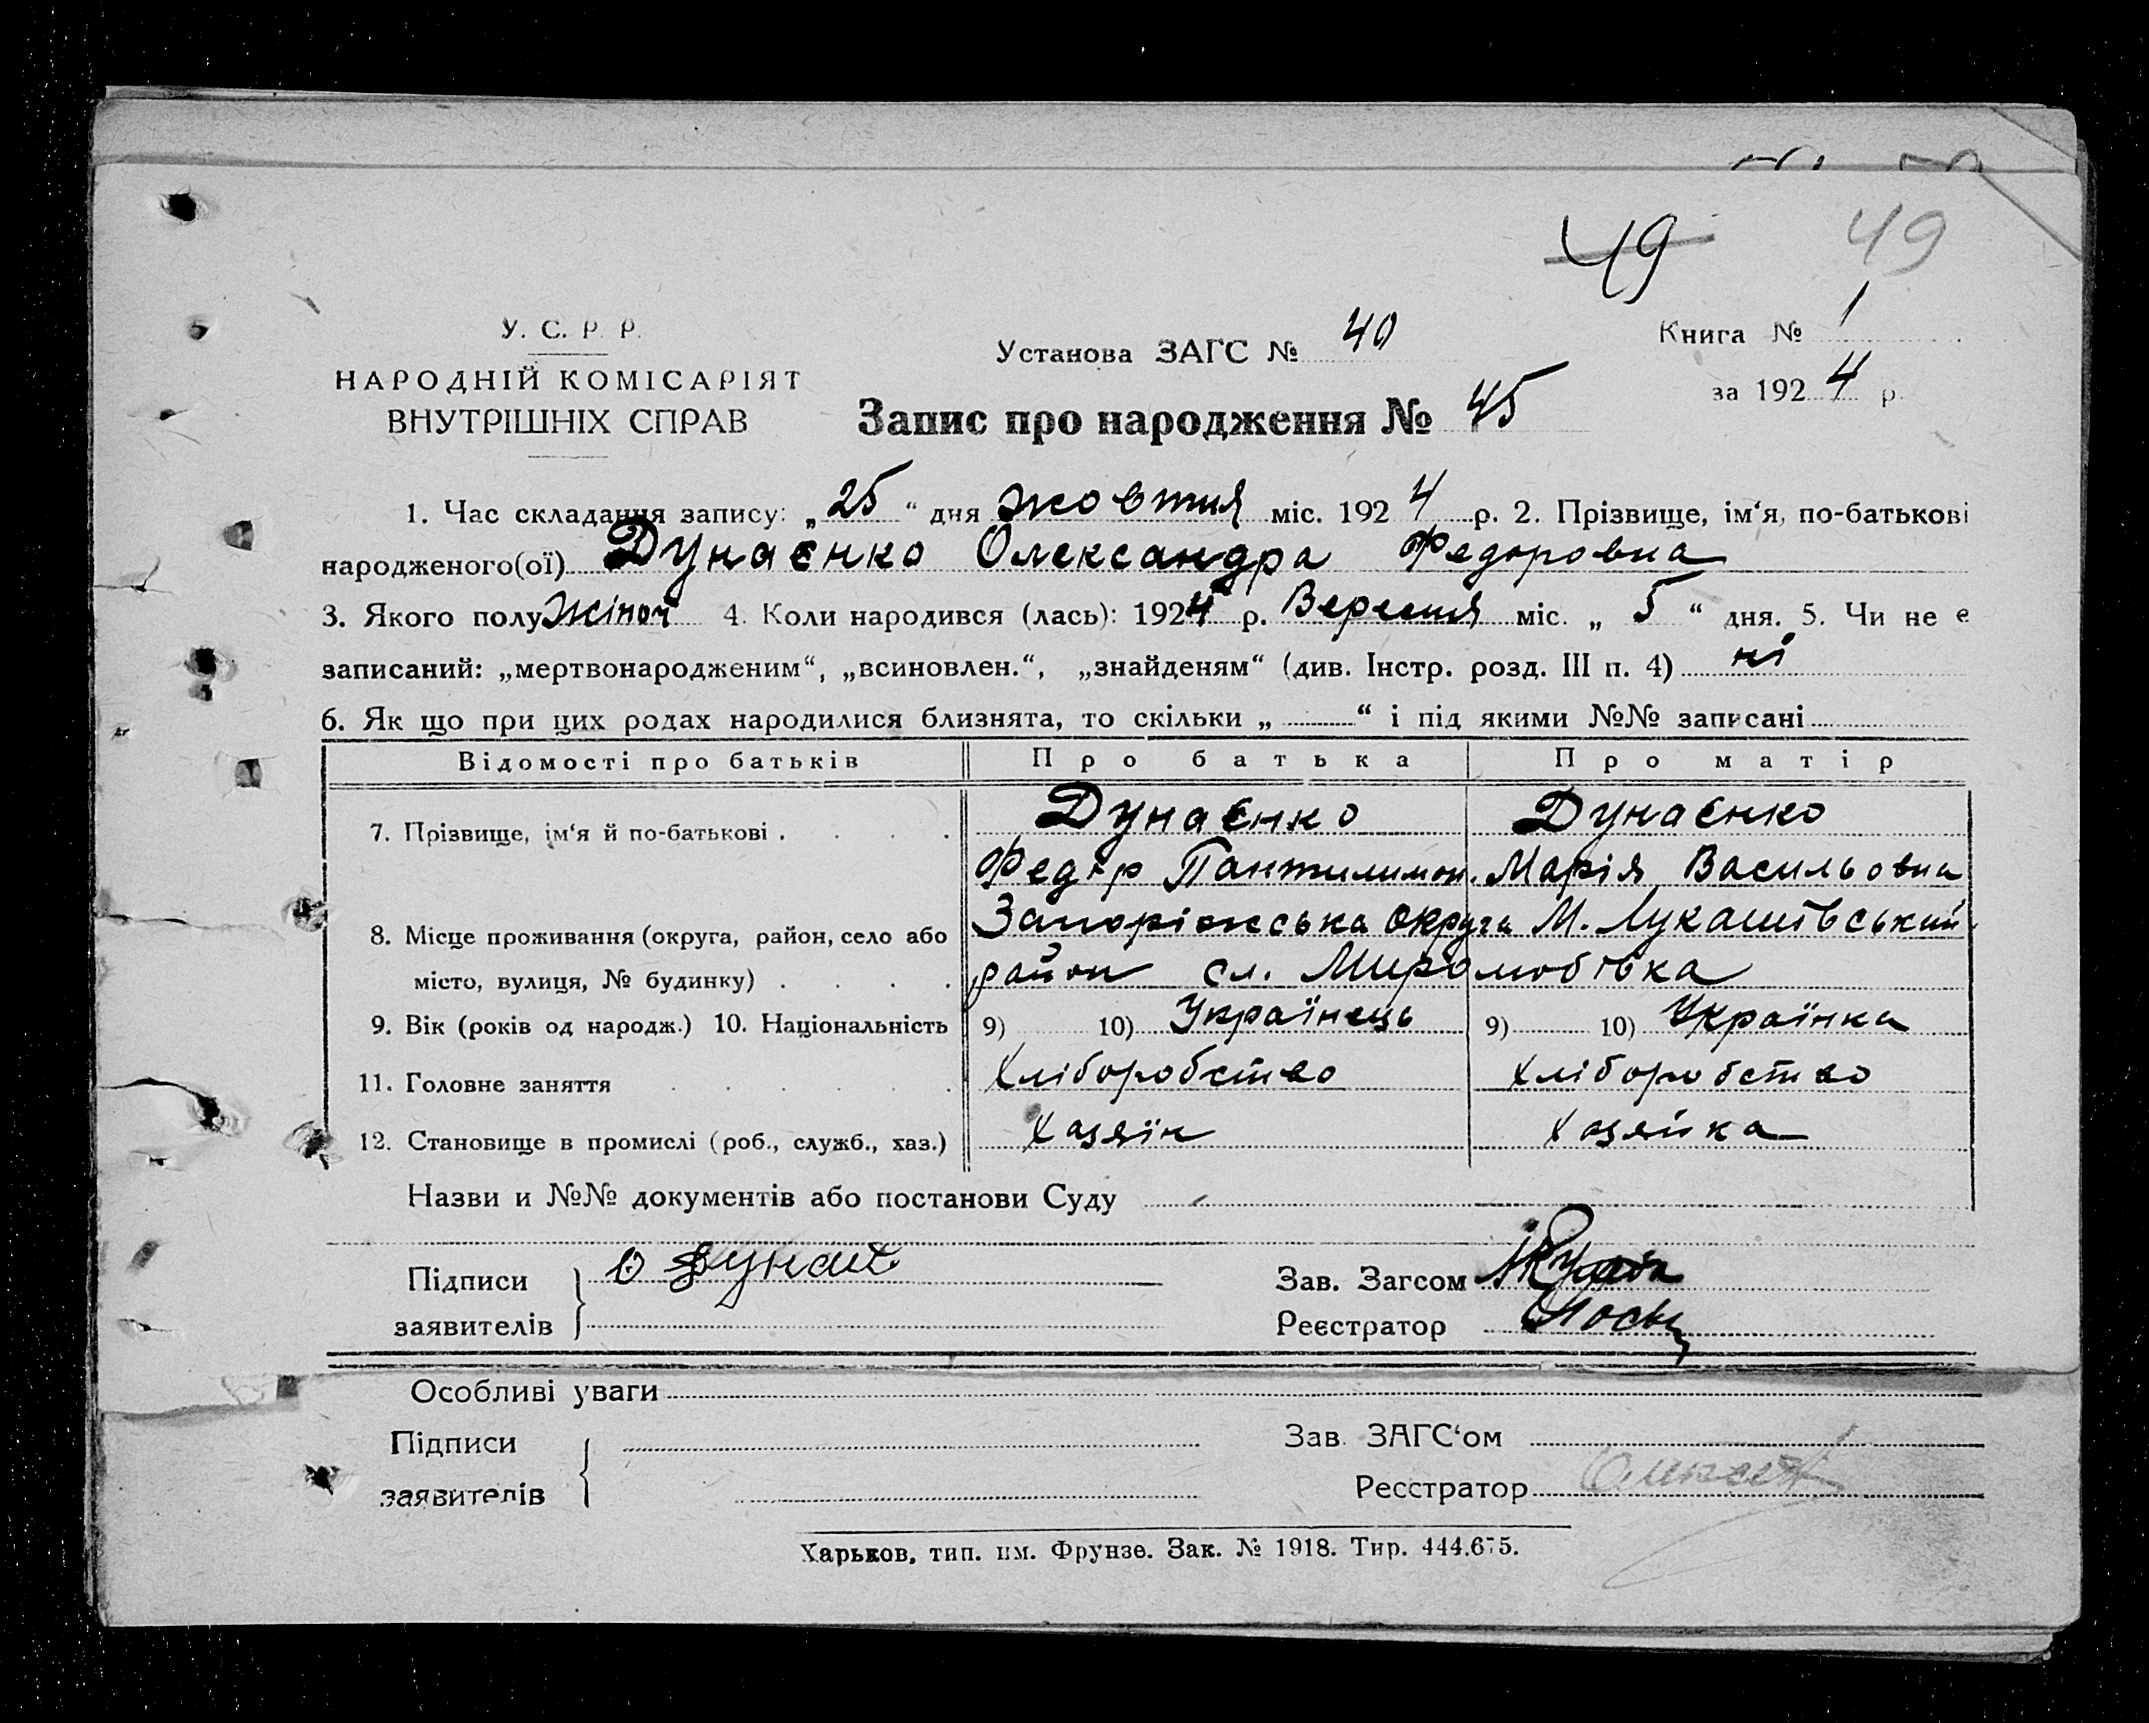 49 49
У. С. Р. Р.
НАРОДНІЙ КОМІСАРІЯТ
ВНУТРІШНІХ СПРАВ
Установа ЗАГС № 40
Книга № 1
за 1924 р.
Запис про народження № 45
1. Час складання запису: „25“ дня жовтня міс. 1924 р. 2. Прізвище, ім‘я, по-батькові
народженого(ої) Дунаєнко Олександра Федоровна
3. Якого полу жіноч 4. Коли народився (лась): 1924 р. Вересня міс. „5“ дня. 5. Чи не є
записаний: „мертвонародженим“, „всиновлен.“, „знайденям“ (див. Інстр. розд. III п. 4) ні
6. Як що при цих родах народилися близнята, то скільки „ “ і під якими №№ записані
Відомості про батьків Про батька Про матір
7. Прізвище, ім‘я й по-батькові . Дунаєнко Дунаєнко
Федір Пантилимон. Марія Васильовна
8. Місце проживання (округа, район, село або Запоріжська округа М. Лукашівський
місто, вулиця, № будинку) . район сл. Миролюбівка
9. Вік (років од народж.) 10. Національність 9) 10) Українець 9) 10) Українка
11. Головне заняття Хліборобство Хліборобство
12. Становище в промислі (роб., служб., хаз.) Хазяїн Хазяйка
Назви и №№ документів або постанови Суду
Підписи
заявителів
Зав. Загсом
Реєстратор
Особливі уваги
Підписи Зав. ЗАГС‘ом
заявителів Реєстратор
Харьков, тип. им. Фрунзе. Зак. № 1918. Тир. 444.675.